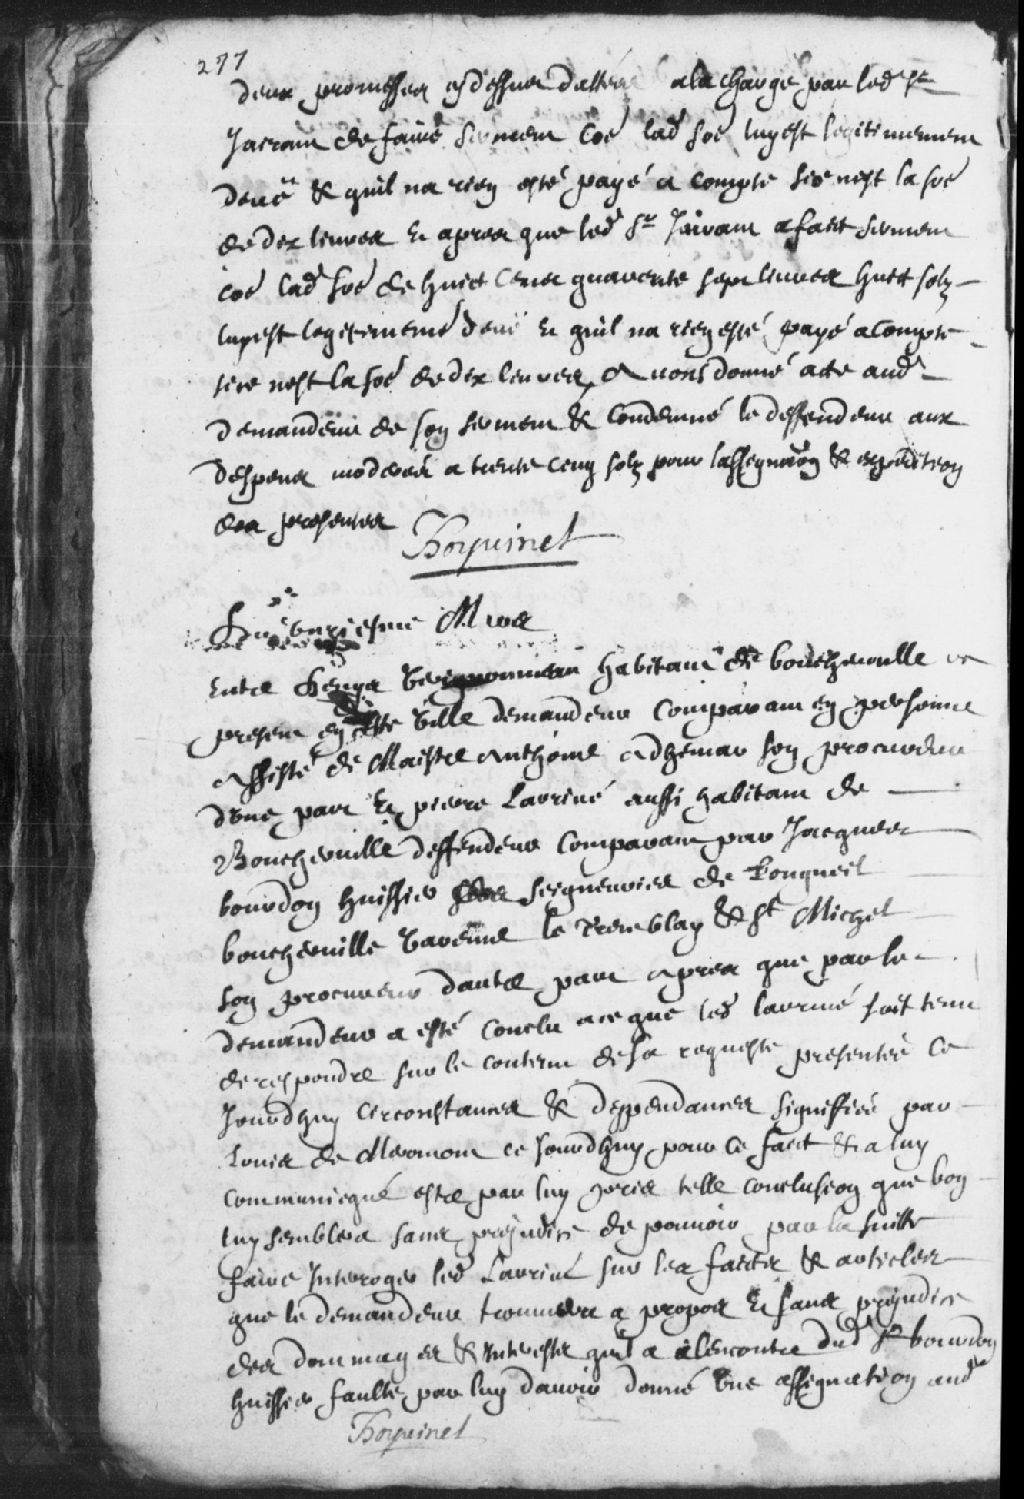 277
deux promesses cy dessus dattées a la charge par led sr
Jarrom de faire serment coe lad soe luy est legitimement
deue & quil na rien esté payé a compte sce nest la soe
de dix livres Et apres que led Sr a faict serment
coe lad soe de huict cens quarente sept livres huict solz
luy est legitimemt deue Et quil na rien esté payé a compte
sice nest la soe de dix livres, Avons donné acte aud
demandeur de son serment & Condemné le deffendeur aux
despens moderés a trente cinq solz pour lassignaon & expedition
des presentes
Boyvinet
Du unziesme Mars
Entre habitant de boucherville
present en cette Ville demandeur Comparant en personne
Assisté de Maistre Anthoine Adhemar son procureur
dune part Et pierre Lavriné aussi habitant de
Boucherville deffendeur Comparant par Jacques
bourdon huissier seigneuries de Longueil
boucherville Varenne le Tremblay & St Michel
son procureur dautre part Apres que par le
demandeur a esté conclu a ce que led lavriné soit tenu
de respondre sur le contenu de sa requeste presentée ce
Jourdhuy Circonstances & deppendances signiffiée par
Louis de Meromont ce Jourdhuy pour ce faict & a luy
communicqué estre par luy prise telle conclusion que bon
luy semblera sans prejudice de pouvoir par la suitte
faire Interroger led Lavriné sur les faicts & articles
que le demandeur trouvera a propos Et sans prejudice
des dommages & Interests quil a alencontre dud Sr bourdon
huissier faulte par luy davoir donné Une assignation aud
Boyvinet